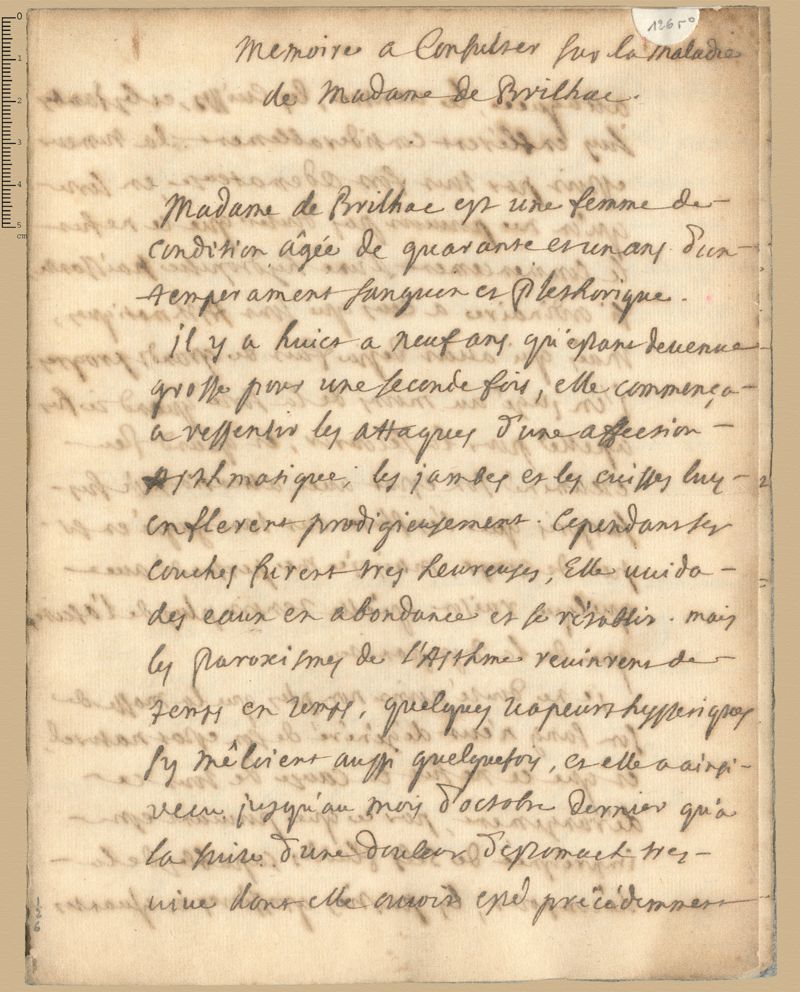 1265°
Memoire a Consulter sur la maladie
de Madame de Brilhac.
Madame de Brilhac est une femme de
condition âgée de quarante et un ans d'un
temperament sanguin et Plethorique.
il y a huict a neuf ans qu'estant devenue
grosse pour une seconde fois, elle commença
a ressentir les attaques d'une affection
Asthmatique, les jambes et les cuisses luy
enflerent prodigieusement. Cependant ses
couches furent tres heureuses, Elle vuida
des eaux en abondance et se rétablit. mais
les Paroxismes de l'Asthme revinrent de
temps en temps, quelques vapeurs hysteriques
sy mêloient aussi quelquefois, et elle a ainsi
vecu jusqu'au mois d'octobre dernier qu'a
la suite d'une douleur d'estomach tres
vive dont elle avoit esté précédemment